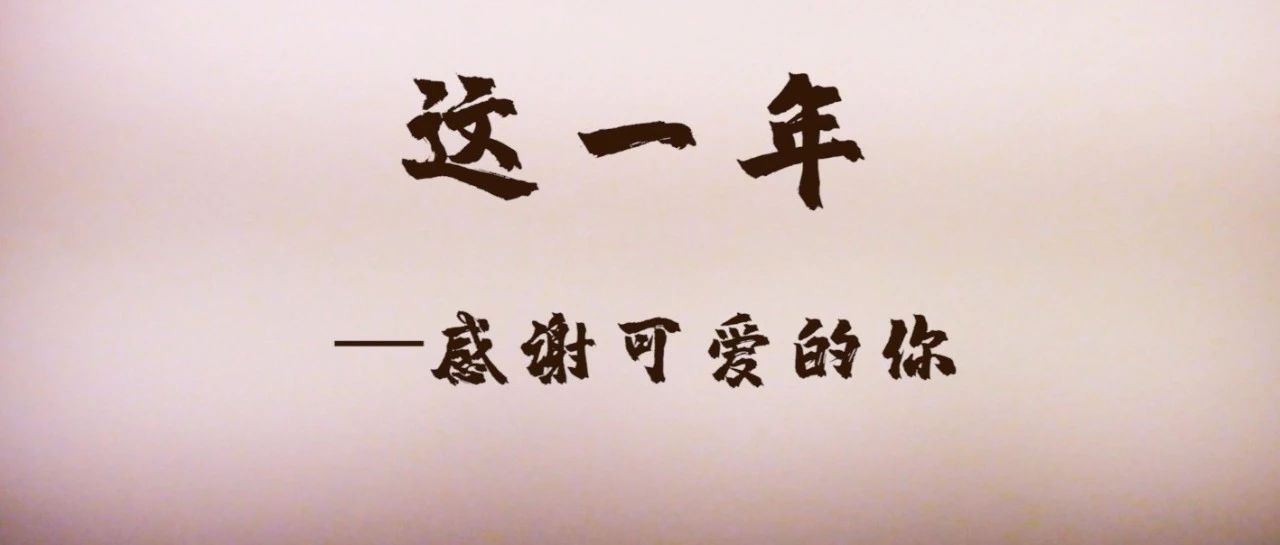 这一年
——感谢可爱的你